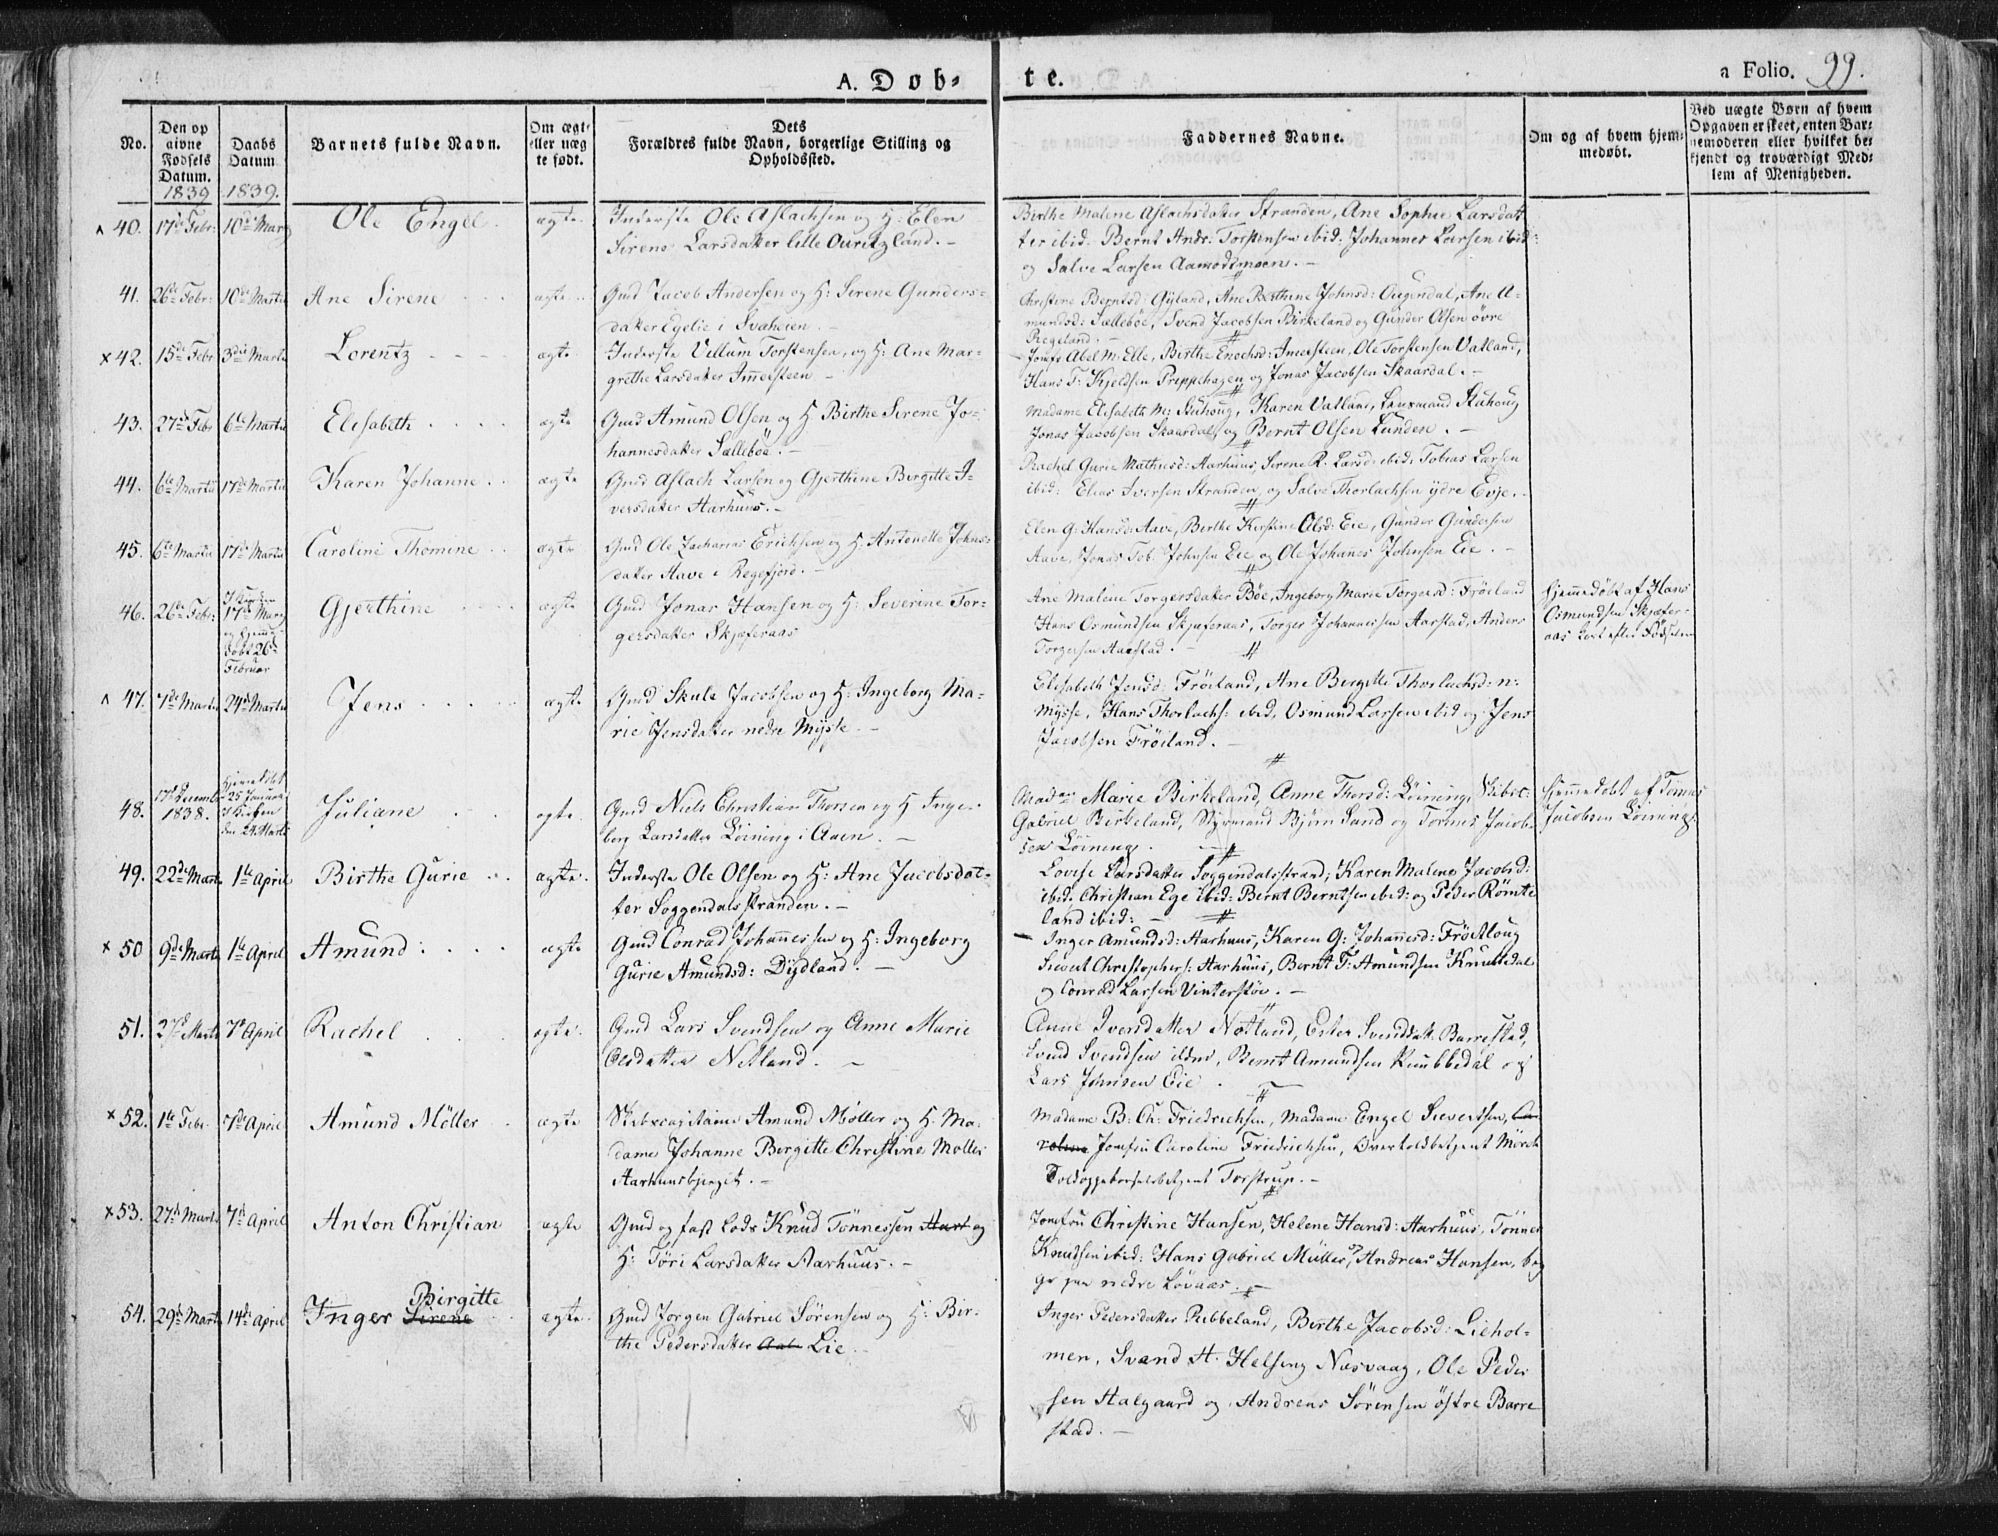 A. Dob-
te.
a Folio. 99.
No.
Den op
givne
Fødsels
Datum.
1839
Daabs
Datum
1839.
Barnets fulde Navn.
Om ægte
eller uæg
te født.
Dets
Forældres fulde Navn, borgerlige Stilling og
Opholdssted.
Faddernes Navne.
Om og af hvem hjem-
medøbt.
Ved uægte Børn af hvem
Opgaven er skeet, enten Bar-
nemoderen eller hvilket be-
kjendt og troværdigt Med-
lem af Menigheden.
40. 17de Febr: 10de Marts Ole Engel. ægte
Inderste Ole Aslachsen og H: Elen
Sirene Larsdatter lille Ouritzland. -
Birthe Malene Aslachsdatter Stranden, Ane Sophie Larsdat
ter ibid. Bernt Andr: Torstensen ibid. Johannes Larsen ibid:
og Salve Larsen Aamodtmoen. -
41. 26de Febr: 10de Martii Ane Sirene ægte
Gmd Jacob Andersen og H: Sirene Gunders-
datter Egelie i Svaheien. -
Christine Berntsd: Gyland, Ane Berthine Johnsd: Ougendal, Ane A-
mundsd: Sællebøe, Svend Jacobsen Birkeland og Gunder Olsen øvre
Regeland. -
x 42. 15de Febr 3die Martii Lorentz ægte
Inderste Villum Torstensen, og H: Ane Mar-
grethe Larsdatter Immesteen -
Jomfr Abel M: Elle, Birthe Enochsd: Immesteen, Ole Torstensen Vatland,
Hans F: Kjeldsen Preppehagen og Jonas Jacobsen Skaardal. -
43. 27de Feb: 6te Martii Elisabeth ægte
Gmd Amund Olsen og H Birthe Sirene Jo-
hannesdatter Sællebøe. -
Madame Elisabeth M: Stuhoug, Karen Vatland, Lensmand Stuhoug
Jonas Jacobsen Skaardal, og Bernt Olsen Lunden. -
44. 6te Martii 17de Martii Karen Johanne ægte
Gmd Aslach Larsen og Gjerthine Birgitte I-
versdatter Aarhuus. -
Rachel Gurie Mathiasd: Aarhuus, Sirene R. Larsd: ibid: Tobias Larsen
ibid: Elias Iversen Stranden, og Salve Thorlachsen ydre Evje.
45. 6te Martii 17de Martii Caroline Thomine ægte
Gmd Ole Zacharias Erichsen og H: Antonette Johns-
datter Aave i Regefjord. -
Elen G: Hansd: Aave, Birthe Kirstine Olsd: Eie, Gunder Gundersen
Aave, Jonas Tob: Johnsen Eie og Ole Johanes Johnsen Eie. -
46. 26de Febr: I Kirken
17de Marts
og hjemme-
døbt 26de
Februar Gjerthine ægte
Gmd Jonas Hansen og H: Severine Tor-
gersdatter Skjæferaas
Ane Malene Torgersdatter Bøe, Ingeborg Marie Torgersd: Frøiland
Hans Osmundsen Skjæferaas, Torger Johannessen Aarstad, Anders
Torgersen Aarstad. -
Hjemmedøbt af Hans
Osmundsen Skjæfer-
aas kort efter Fødselen
47. 7de Martii 24de Martii Jens ægte
Gmd Skule Jacobsen og H: Ingeborg Ma-
rie Jensdatter nedre Mysse. -
Elisabeth Jonsd: Frøiland, Ane Birgitte Thorlachsd: n:
Mysse, Hans Thorlachs: ibid, Osmund Larsen ibid og Jens
Jacobsen Frøiland. -
48. 17de Decemb
1838. Hjemmedøbt
25 Januar
I Kirken
den 24 Marts Juliane ægte
Gmd Niels Christian Thorsen og H Inge-
borg Larsdatter Løining i Aaen. -
Madme Marie Birkeland, Anne Thorsd: Løining, Skibst:
Gabriel Birkeland, Styrmand Bjørn Sand og Tønnes Jacob-
sen Løining.
Hjemmedøbt af Tønnes
Jacobsen Løining.
49. 22de Marts 1te April Birthe Gurie ægte.
Inderste Ole Olsen og H: Ane Jacobsdat-
ter Soggendalsstranden. -
Lovise Larsdatter Soggendalsstrand, Karen Malene Jacobsd:
ibid. Christian Ege ibid: Bernt Berntsen ibid: og Peder Rømte
land ibid: -
x 50 9de Marts 1te April Amund ægte
Gmd Conrad Johannessen og H: Ingeborg
Gurie Amundsd: Dydland. -
Inger Amundsd: Aarhuus, Karen G: Johannesd: Frøitloug
Sivert Christophers: Aarhuus, Bernt T: Amundsen Knubbedal
og Conrad Larsen Vinterstøe. -
51. 27de Marts 7de April Rachel ægte.
Gmd Lars Svendsen og Anne Marie
Olsdatter Netland. -
Anne Iversdatter Netland, Ester Svendsdatt. Barrestad,
Svend Svendsen ibid, Bernt Amundsen Knubbedal og
Lars Jonsen Eie.
x 52. 1te Febr. 7de April Amund Möller ægte
Skibscapitaine Amund Møller og H. Ma-
dame Johanne Birgitte Christine Möller
Aarhuusbjerget. -
Madame B: Ch: Friedrichsen, Madame Engel Sivertsen, Ca-
roline Jomfru Caroline Friedrichsen, Overtoldbetjent Mörch
Toldoppebørselsbetjent Torstrup. -
x 53. 27de Marts 7de April Anton Christian ægte
Gmd og fast Lods Knud Tönnessen Aart og
H: Töri Larsdatter Aarhuus. -
Jomfru Christine Hansen, Helene Hansd: Aarhuus, Tönnes
Knudsen ibid: Hans Gabriel Müller og Andreas Hansen, beg
ge paa nedre Løvaas. -
54. 29de Marts 14de April Inger Sirene Birgitte ægte.
Gmd Jørgen Gabriel Sörensen og H: Bir-
the Pedersdatter Lie.
Inger Pedersdatter Pubbeland, Birthe Jacobsd: Liehol-
men, Svend H. Helsing Næsvaag, Ole Peder
sen Aalgaard og Andreas Sörensen östre Barre
stad. -